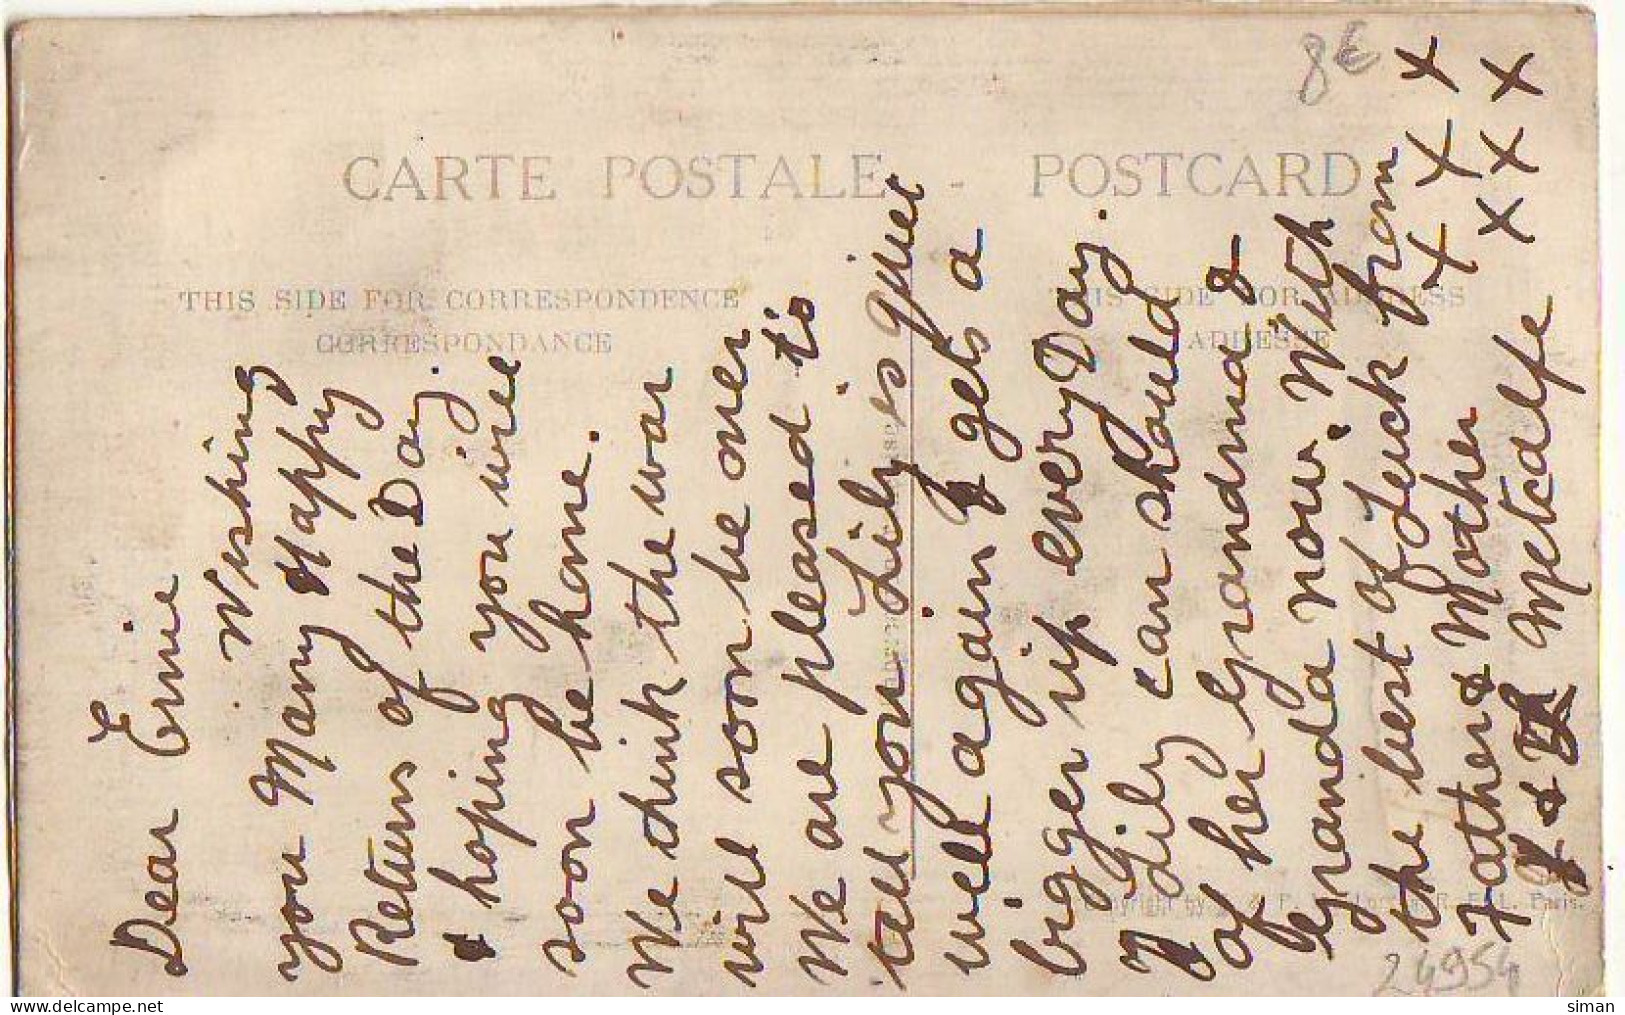 CARTE POSTALE - POSTCARD
THIS SIDE FOR CORRESPONDENCE
CORRESPONDANCE
THIS SIDE FOR ADDRESS
ADRESSE
8€
Dear Ernie
Wishing
you Many Happy
Returns of the Day.
& hoping you will
soon be home.
We think the war
will soon be over
We are pleased to
tell you Lily is quiet
well again & gets a
bigger up every Day.
Lily can should
of her Grandma &
Granda now. With
the best of Luck from
Father & Mother
& Metcalfe
x x x
x x x
24954
Paris.
siman